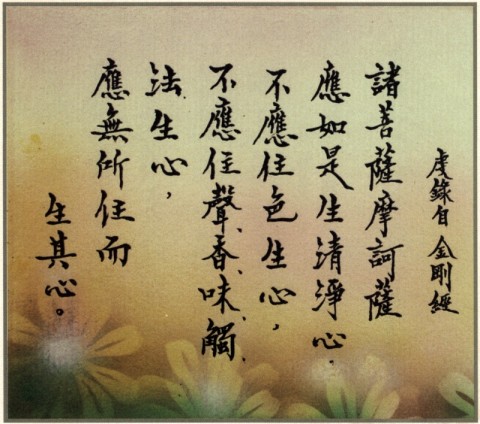 虔錄自 金剛經
諸菩薩摩訶薩
應如是生清淨心.
不應住色生心,
不應住聲、香、味、觸、
法生心,
應無所住而
生其心。